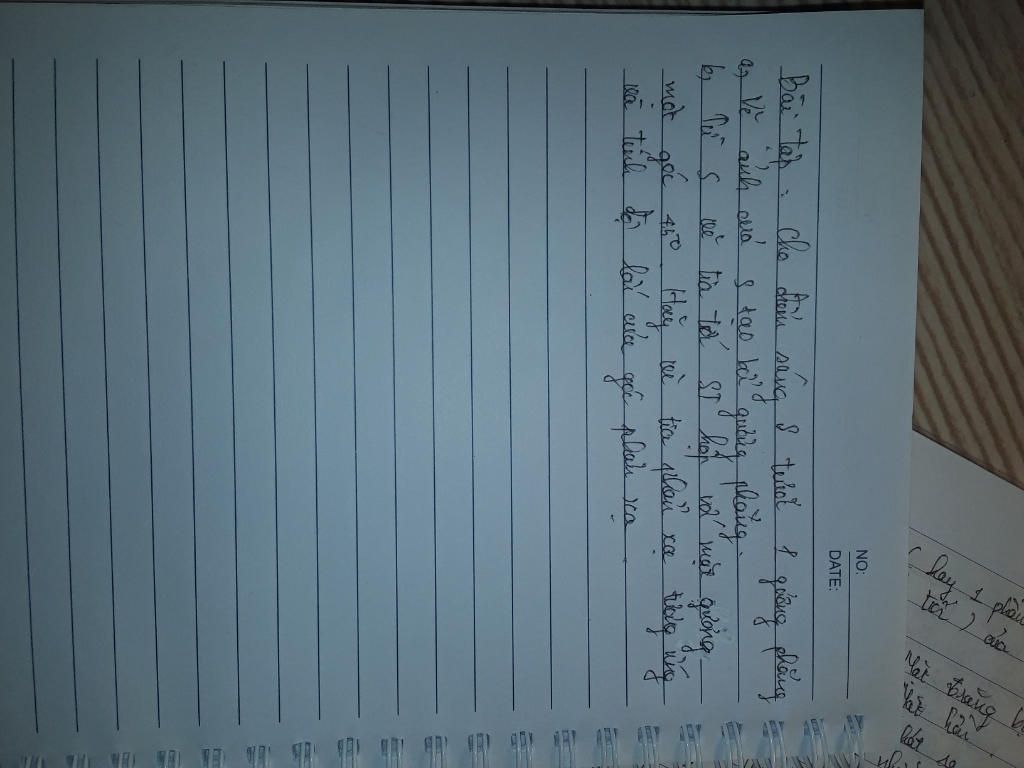 NO:
DATE:
Bài tập: Cho điểm sáng S trước 1 gương phẳng
a, Vẽ ảnh của S tạo bởi gương phẳng.
b, Từ S vẽ tia tới SI hợp với mặt gương
một góc 45°. Hãy vẽ tia phản xạ tương ứng
và tính độ lớn của góc phản xạ
( hay 1 phần
Mặt trăng bị